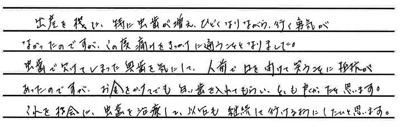 出産を機に、特に虫歯が増え、ひどくなりながら、行く勇気が
なかったのですが、この度痛みをきっかけに通うことになりました。
虫歯で欠けてしまった奥歯を気にして、人前で口を開けて笑うことに抵抗が
あったのですが、お金をかけてでも白い歯を入れてもらい、心も戸がたと思います。
これを機会に、虫歯を治療して、以后も継続して行ける様にしたいと思います。